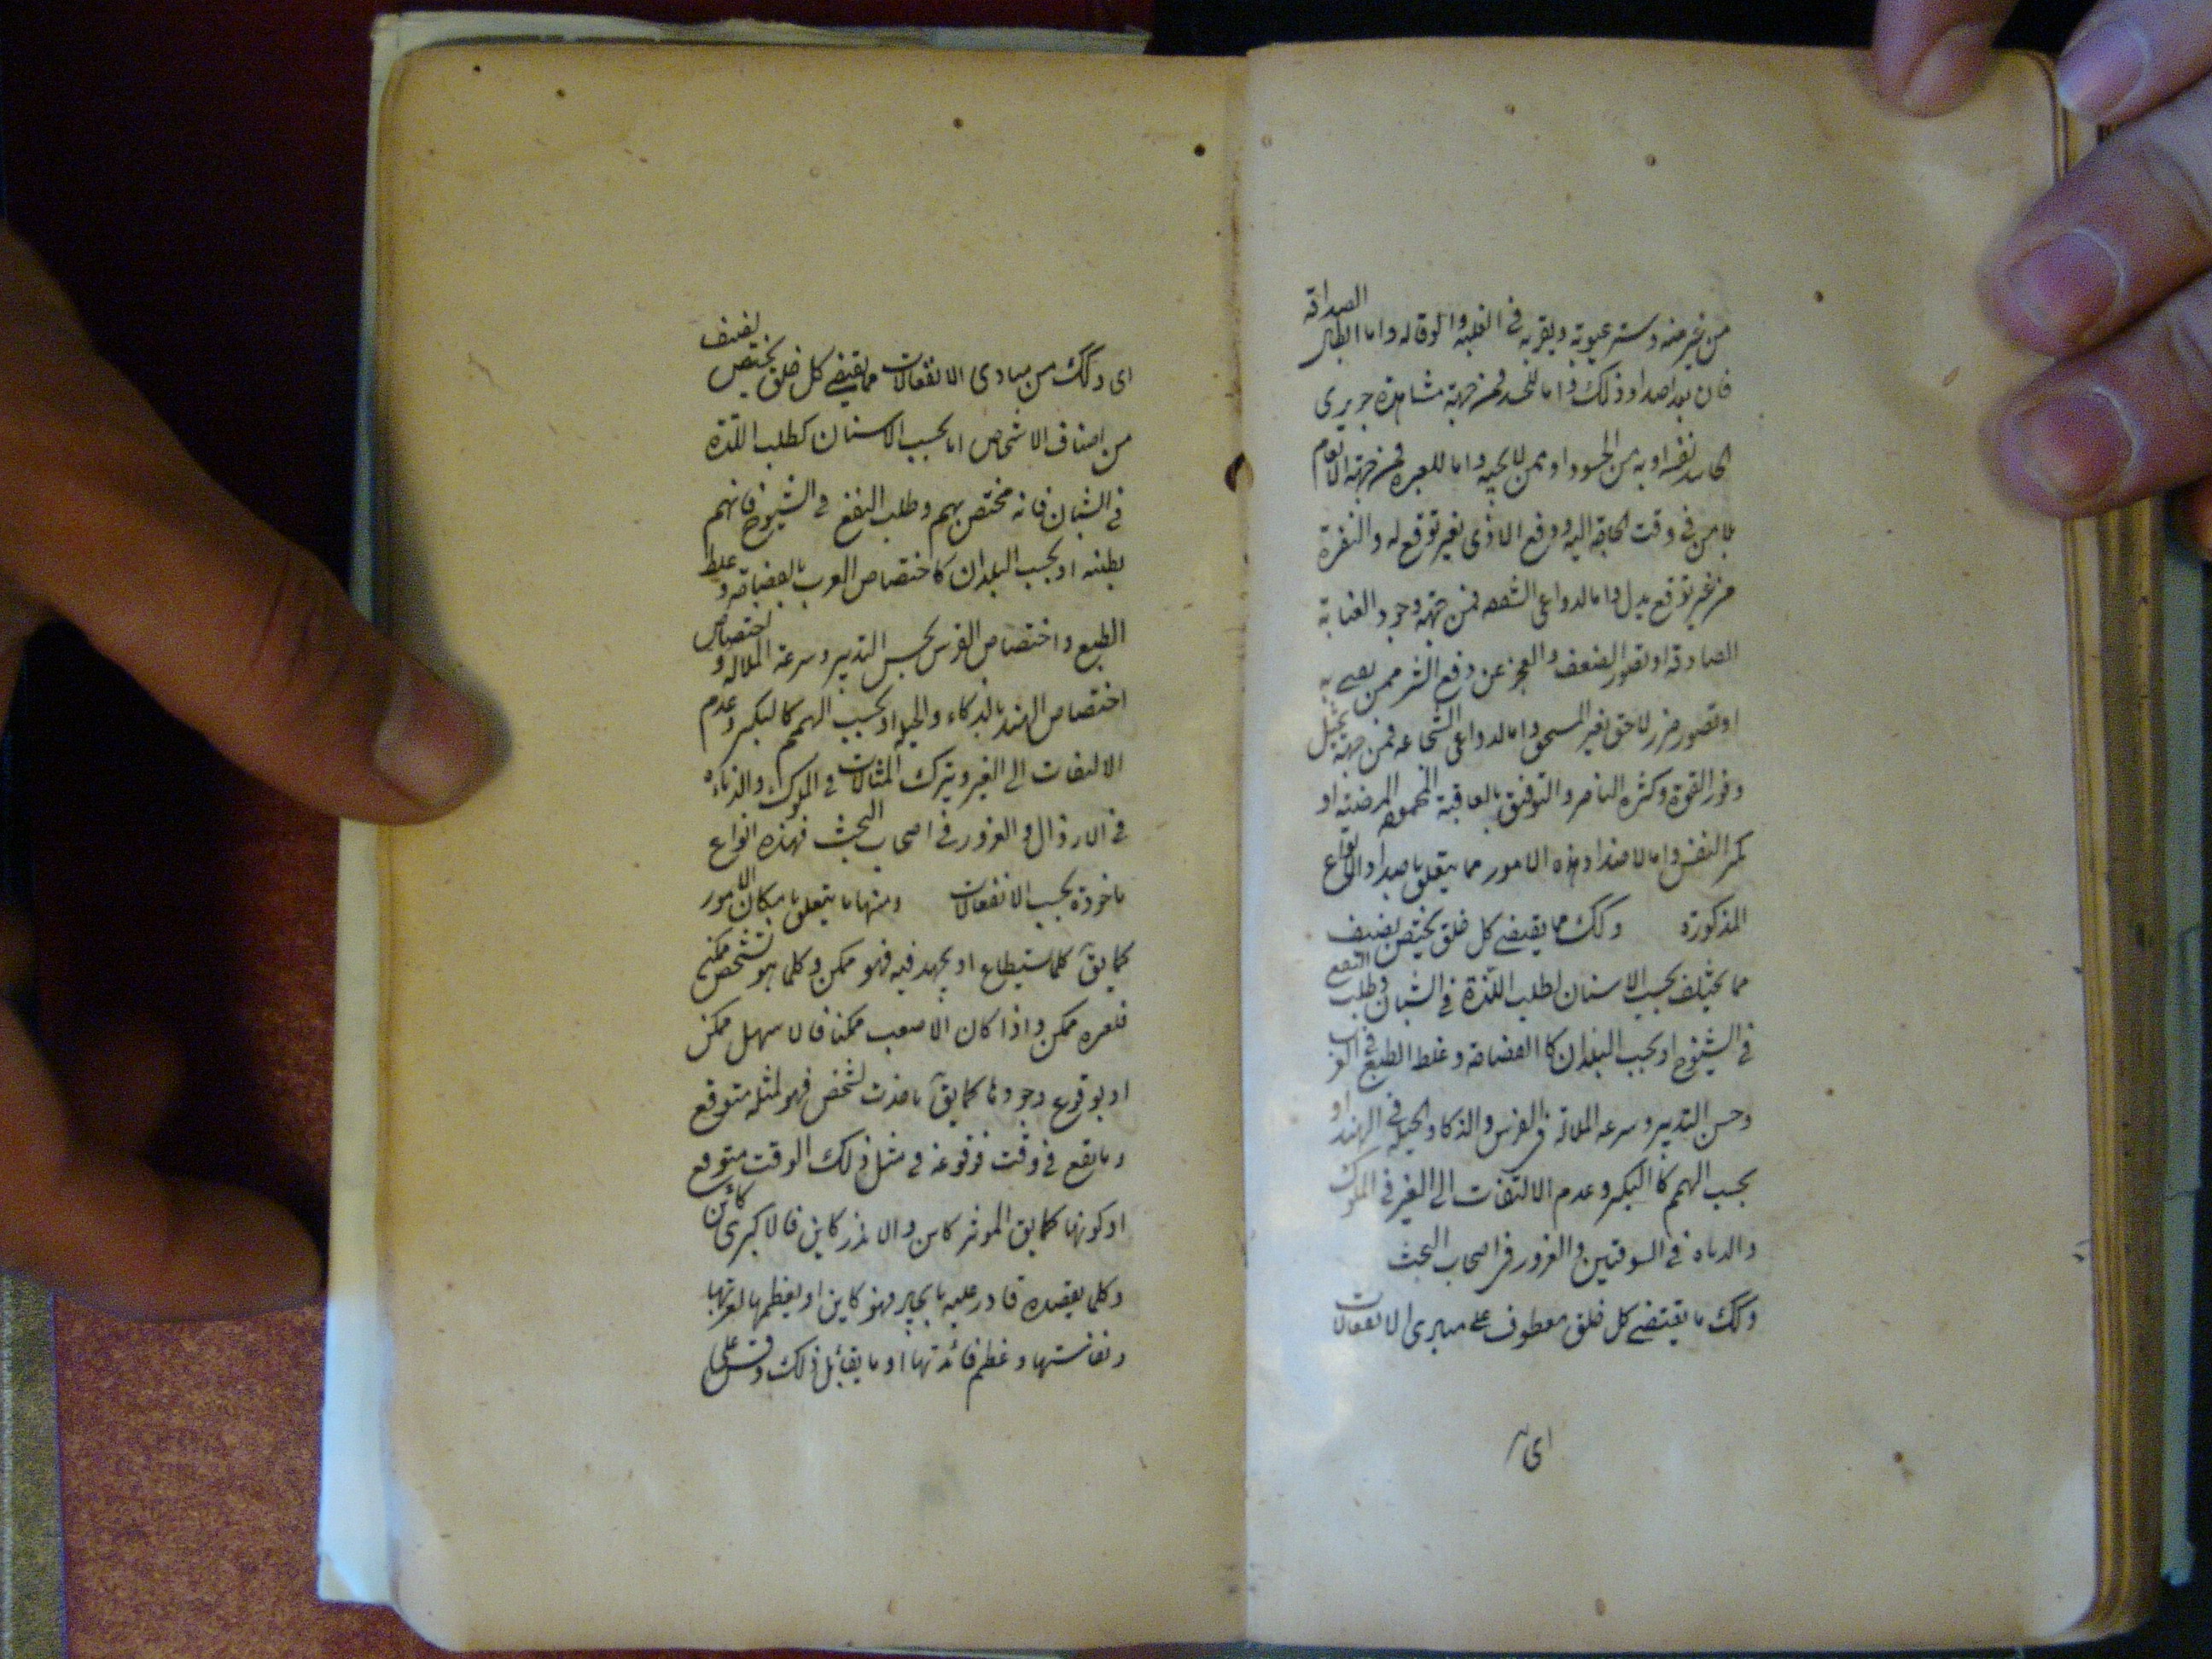 من غير منه وستر عيوبه ويقربه في الغلبة والوقاله واما ابطال الصداقة
فان بعد اصداد ذلك واما للحسد فمن جهة مشاهدة
نفسه او به من الحسود او ممن لا يحبه واما للغيره فمن جهة الانعام
في وقت الحاجة اليه ودفع الاذى بغير توقع له والنفرة
من غير توقع بدل واما لدواعى فمن جهة وجود العنابة
الصادقة او تصور الضعف والعجز عن دفع الشر ممن يصى به
او تصور ضرر لاحق بغير المستحق واما لدواعى الشجاعه فمن جهة تخيل
وفور القوة وكثرة الناصر والتوفيق بالعاقبة المحموده المرضيته او
كبر النفس واما لاضداد هذه الامور مما يتعلق باضداد الانواع
المذكورة وكك مما يقتضى كل خلق يختص بصنف
مما يختلف بحسب الاسنان لطلب اللذة في الشبان وطلب النفع
في الشيوخ او بحسب البلدان كا الفصاحة وغلظ الطبع في العرب
وحسن التدبير وسرعه الملالة في الفرس والذكا والحيلة في الهند او
بحسب الهمم كا التكبر وعدم الالتفات الى الغير في الملوك
والدناه في السوقيين والغرور في اصحاب البحث
وكك ما يقتضى كل خلق معطوف على مبادى الانفعالات
اى
اى وكك من مبادى الانفعالات مما يقتضى كل خلق يختص بصنف
من اصناف الاشخاص اما بحسب الاسنان كطلب اللذة
في الشبان فانه مختص بهم وطلب النفع في الشيوخ فانهم
او بحسب البلدان كاختصاص العرب بالفصاحة وغلظ
الطبع واختصاص الفرس بحسن التدبير وسرعة الملاله و اختصاص
اختصاص الهند بالذكاء والحيلة او بحسب الهمم كالتكبر وعدم
الالتفات الى الغير وبترك المثالات في الملوك والدناءه
في الارذال والغرور في اصحاب البحث فهذه انواع
ماخوذة بحسب الانفعالات ومنها ما يتعلق بامكان الامور
كما يق كلما يستطاع او يجهد فيه فهو ممكن وكلما هو لشخص ممكن
فلغيره ممكن واذا كان الاصعب ممكنا فالاسهل ممكن
او بوقوع وجودها كما يق ما حدث لشخص فهو لمثله متوقع
وما يقع في وقت فوقوعه في مثل ذلك الوقت متوقع
او كونها كما يق الموثر كاين والانذر كاين فالاكبرى كائن
وكلما يقصده قادر عليه فهو كاين او بعظمها لعزتها
ونفاستها وعظم فائدتها او ما يقابل ذلك وقس على